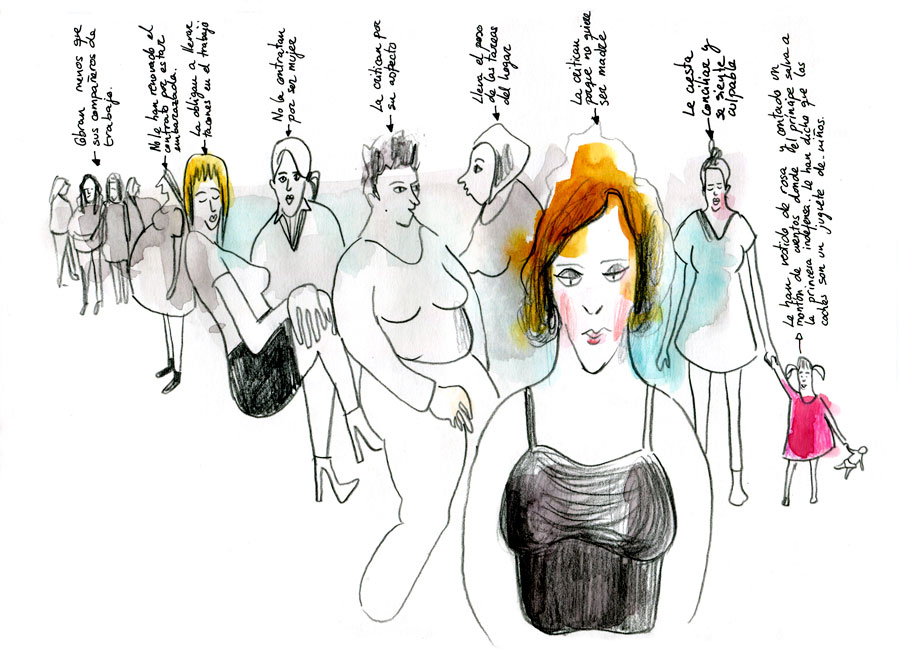 Cobran menos que
sus compañeros de
trabajo.
No le han renovado el
contrato por estar
embarazada.
La obligan a llevar
tacones en el trabajo
No la contratan
por ser mujer
La critican por
su aspecto
Lleva el peso
de las tareas
del hogar
La critican
porque no quiere
ser madre
Le cuesta
conciliar y
se siente
culpable
Le han vestido de rosa y contado un
montón de cuentos donde el príncipe salva a
la princesa indefensa. Le han dicho que los
coches son un juguete de niños.